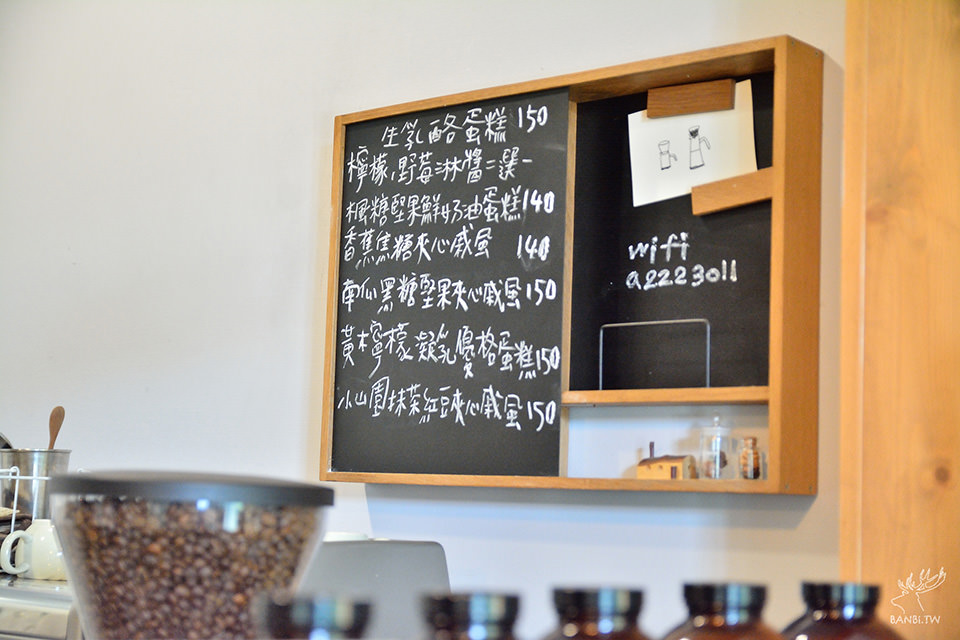 生乳酪蛋糕 150
檸檬,野莓淋醬二選一
楓糖堅果鮮奶油蛋糕 140
香蕉焦糖夾心戚風 140
南瓜黑糖堅果夾心戚風 150
黃檸檬凝乳優格蛋糕 150
小山園抹茶紅豆夾心戚風 150
wifi
a2223011
BANBI.TW